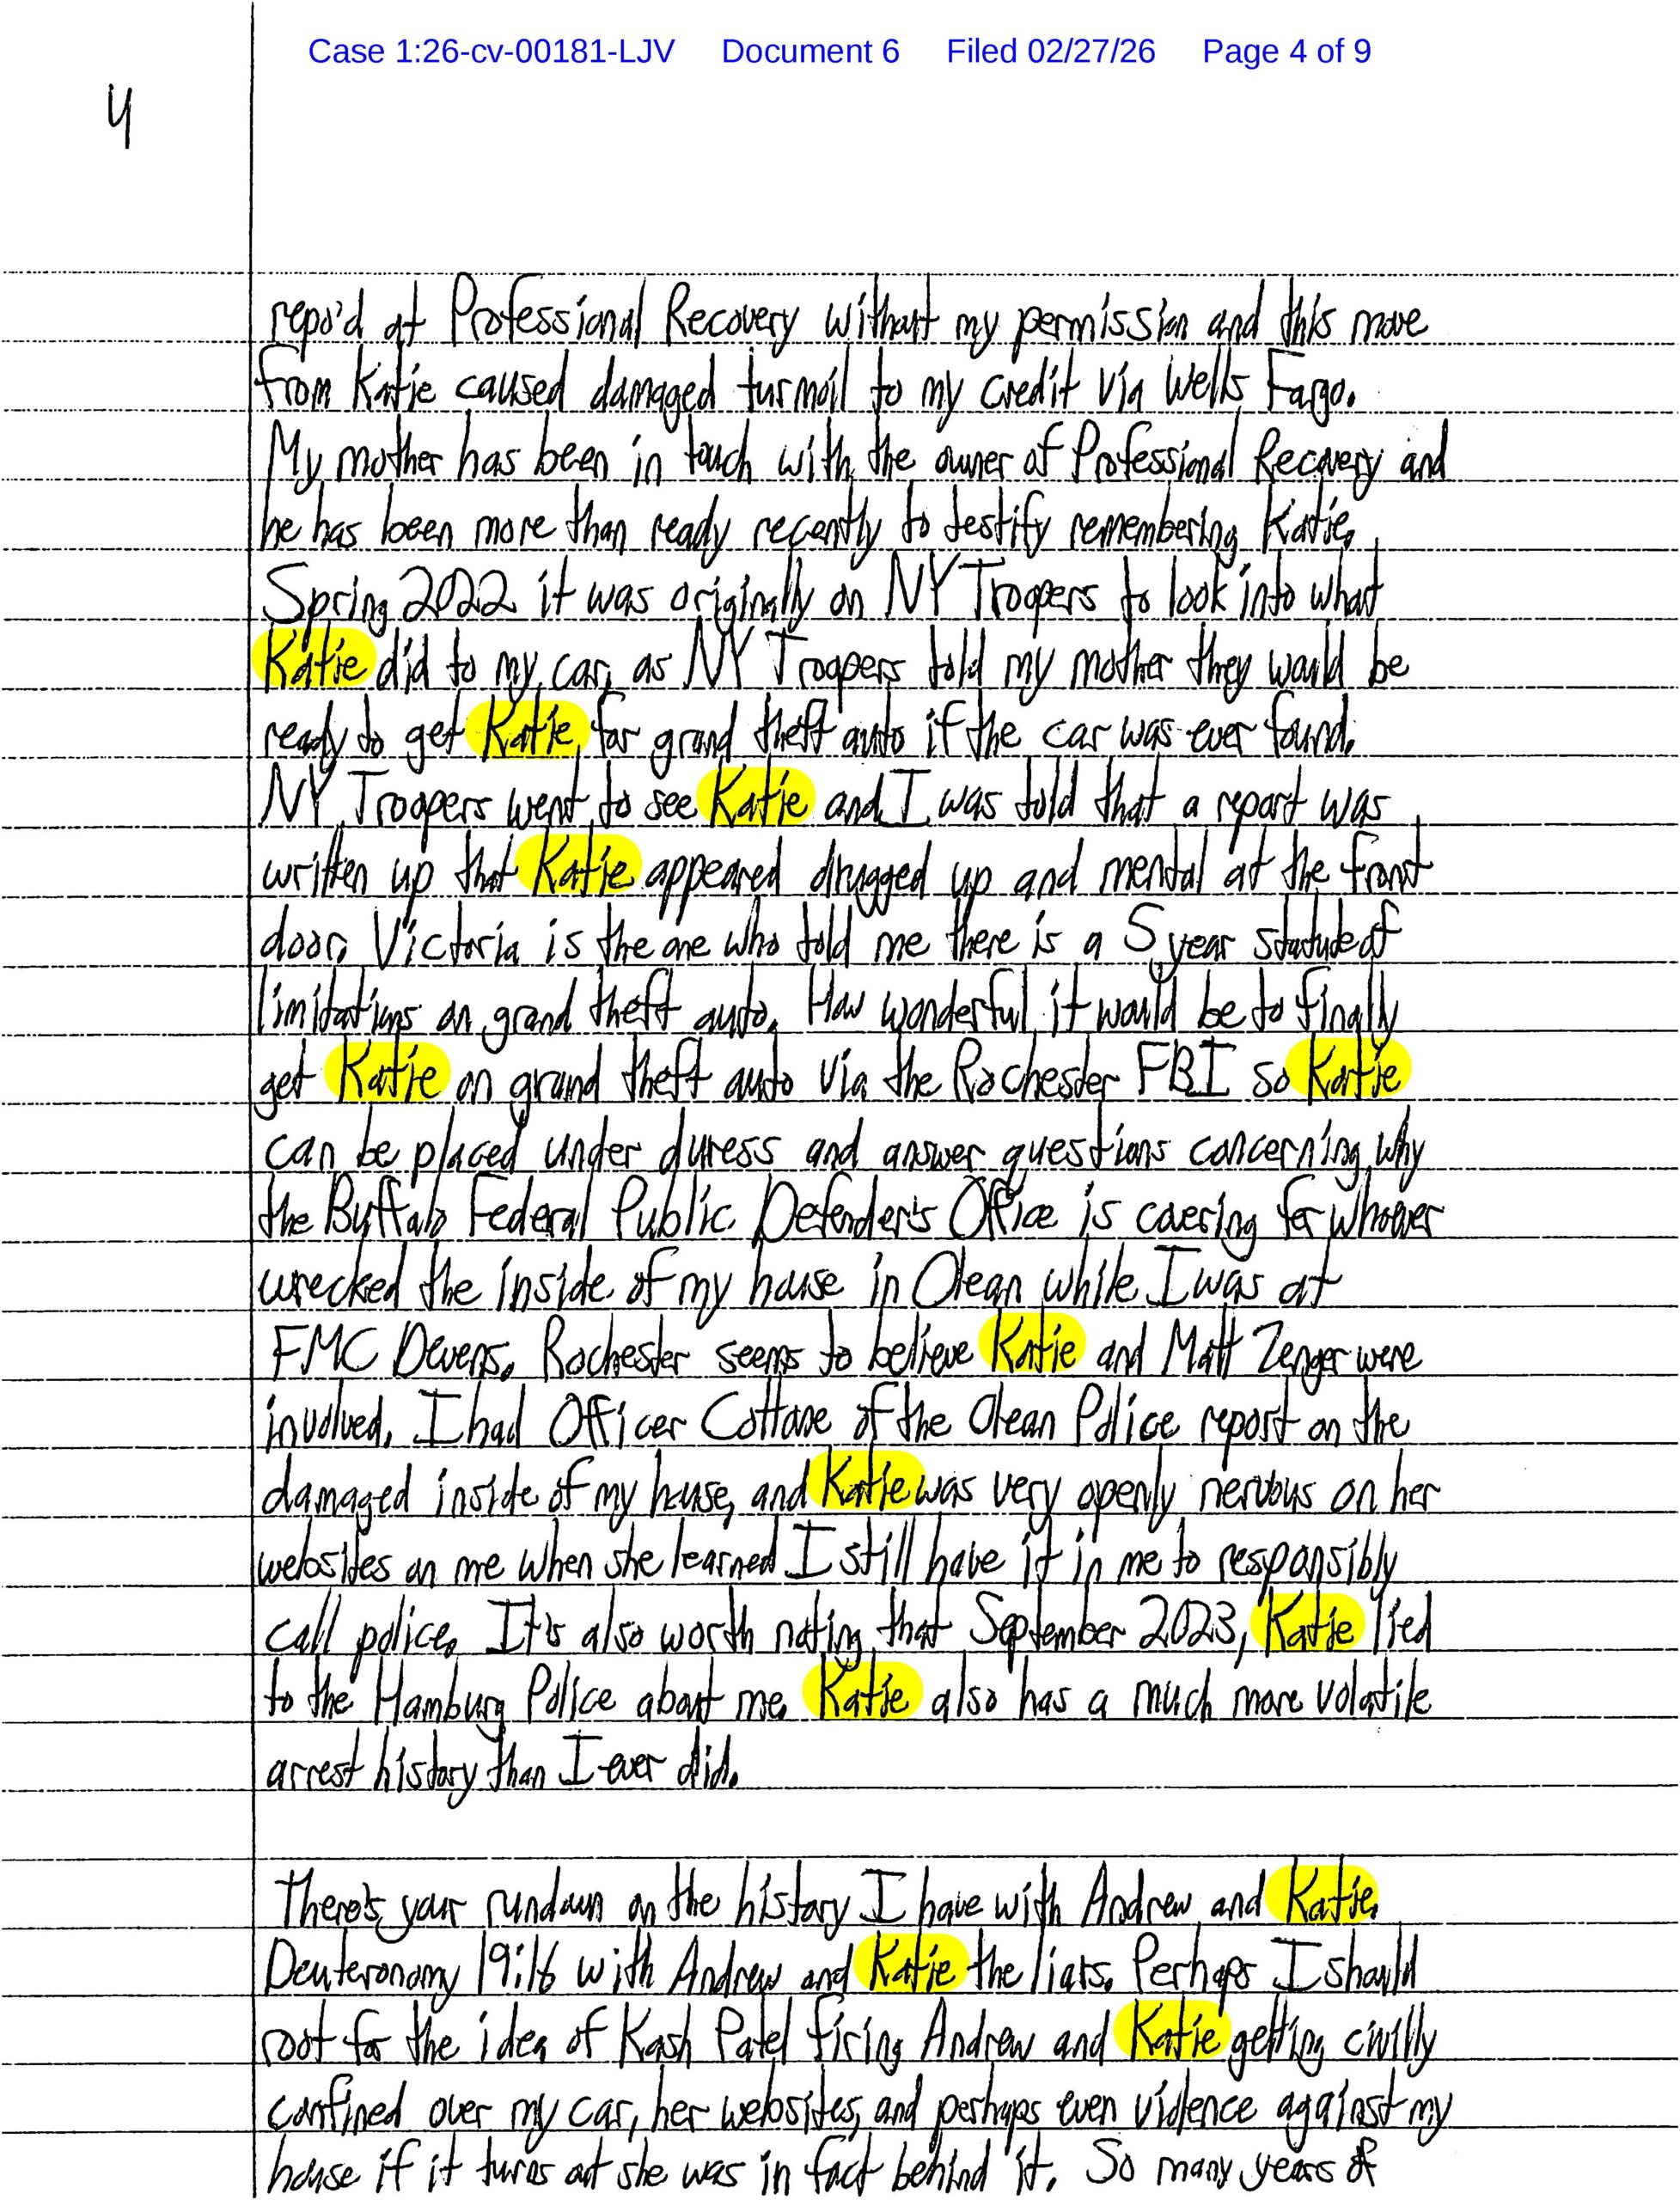 Case 1:26-cv-00181-LJV Document 6 Filed 02/27/26 Page 4 of 9
4
repo'd at Professional Recovery without my permission and this move
from Katie caused damaged turmoil to my credit via Wells Fargo.
My mother has been in touch with the owner of Professional Recovery and
he has been more than ready recently to testify remembering Katie.
Spring 2022 it was originally on NY Troopers to look into what
Katie did to my car, as NY Troopers told my mother they would be
ready to get Katie for grand theft auto if the car was ever found.
NY Troopers went to see Katie and I was told that a report was
written up that Katie appeared drugged up and mental at the front
door. Victoria is the one who told me there is a 5 year statude of
limitations on grand theft auto. How wonderful it would be to finally
get Katie on grand theft auto via the Rochester FBI so Katie
can be placed under duress and answer questions concerning why
the Buffalo Federal Public Defender's Office is covering for whoever
wrecked the inside of my house in Olean while I was at
FMC Devens. Rochester seems to believe Katie and Matt Zenger were
involved. I had Officer Cottone of the Olean Police report on the
damaged inside of my house, and Katie was very openly nervous on her
websites on me when she learned I still have it in me to responsibly
call police. It's also worth noting that September 2023, Katie lied
to the Hamburg Police about me. Katie also has a much more volatile
arrest history than I ever did.
There's your rundown on the history I have with Andrew and Katie.
Deuteronomy 19:16 with Andrew and Katie the liars. Perhaps I should
root for the idea of Kash Patel firing Andrew and Katie getting civilly
confined over my car, her websites, and perhaps even violence against my
house if it turns out she was in fact behind it. So many years of